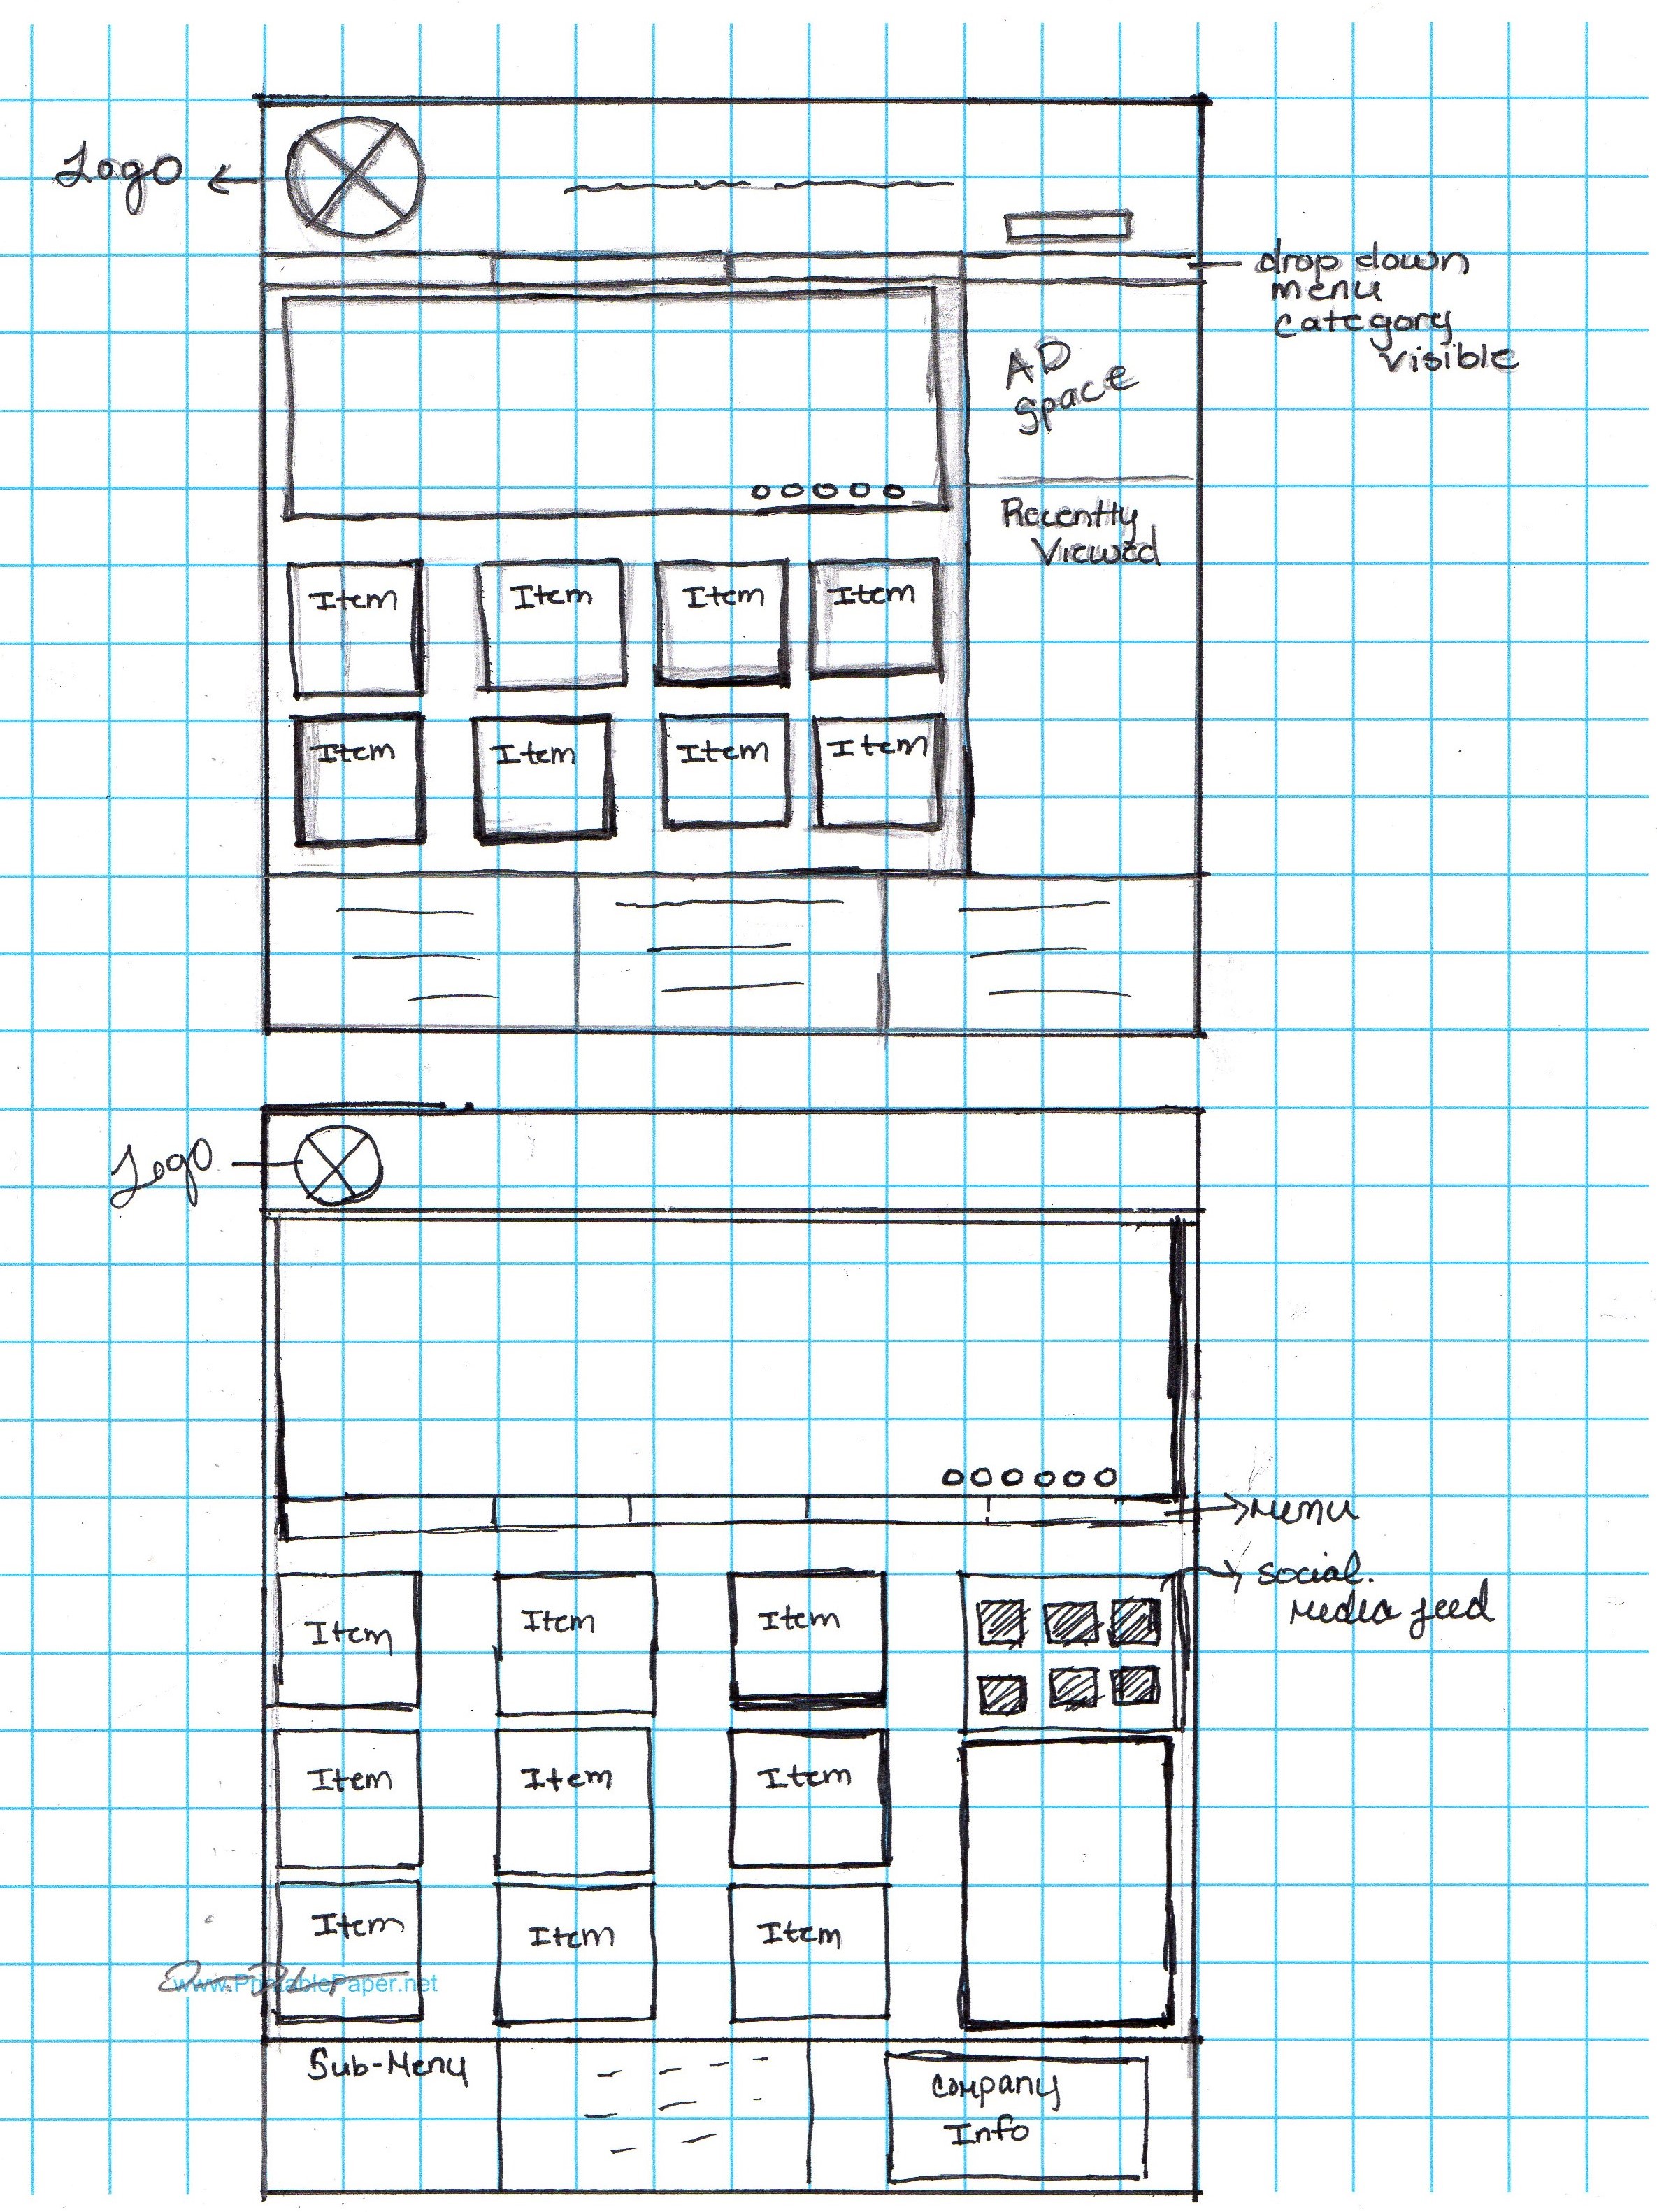 Logo
drop down
menu
category
visible
AD
Space
Recently
Viewed
Item Item Item Item
Item Item Item Item
Logo
Menu
social.
Media feed
Item Item Item
Item Item Item
Item Item Item
www.PrintablePaper.net
Sub-Menu
Company
Info